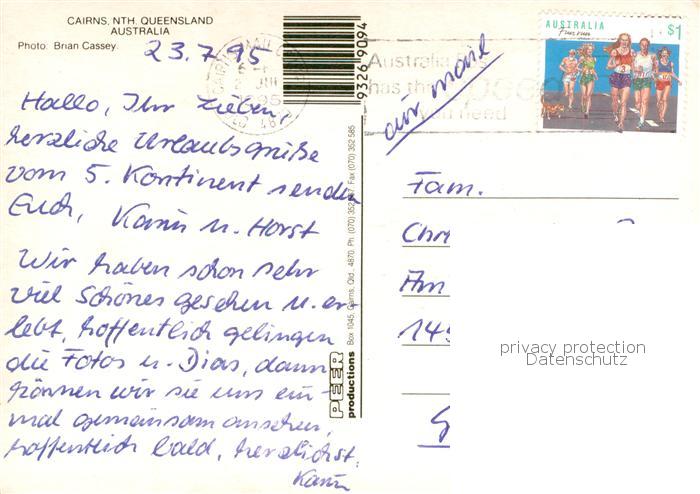 CAIRNS, NTH. QUEENSLAND
AUSTRALIA
Photo: Brian Cassey
23.7.95
Hallo, Ihr Lieben,
herzliche Urlaubsgrüße
vom 5. Kontinent senden
Euch, Karin u. Horst
Wir haben schon sehr
viel Schönes gesehen u. er-
lebt, hoffentlich gelingen
die Fotos u. Dias, dann
können wir sie uns ein-
mal gemeinsam ansehen,
hoffentlich bald, herzlichst,
Karin
9326 9094
PEER
productions
Box 1045, Cairns, Qld., 4870. Ph. (070) Fax (070) 352 585
Australia
has the
you need
air mail
AUSTRALIA
Fun run
$1
Fam.
Chr
Am
145
G
privacy protection
Datenschutz